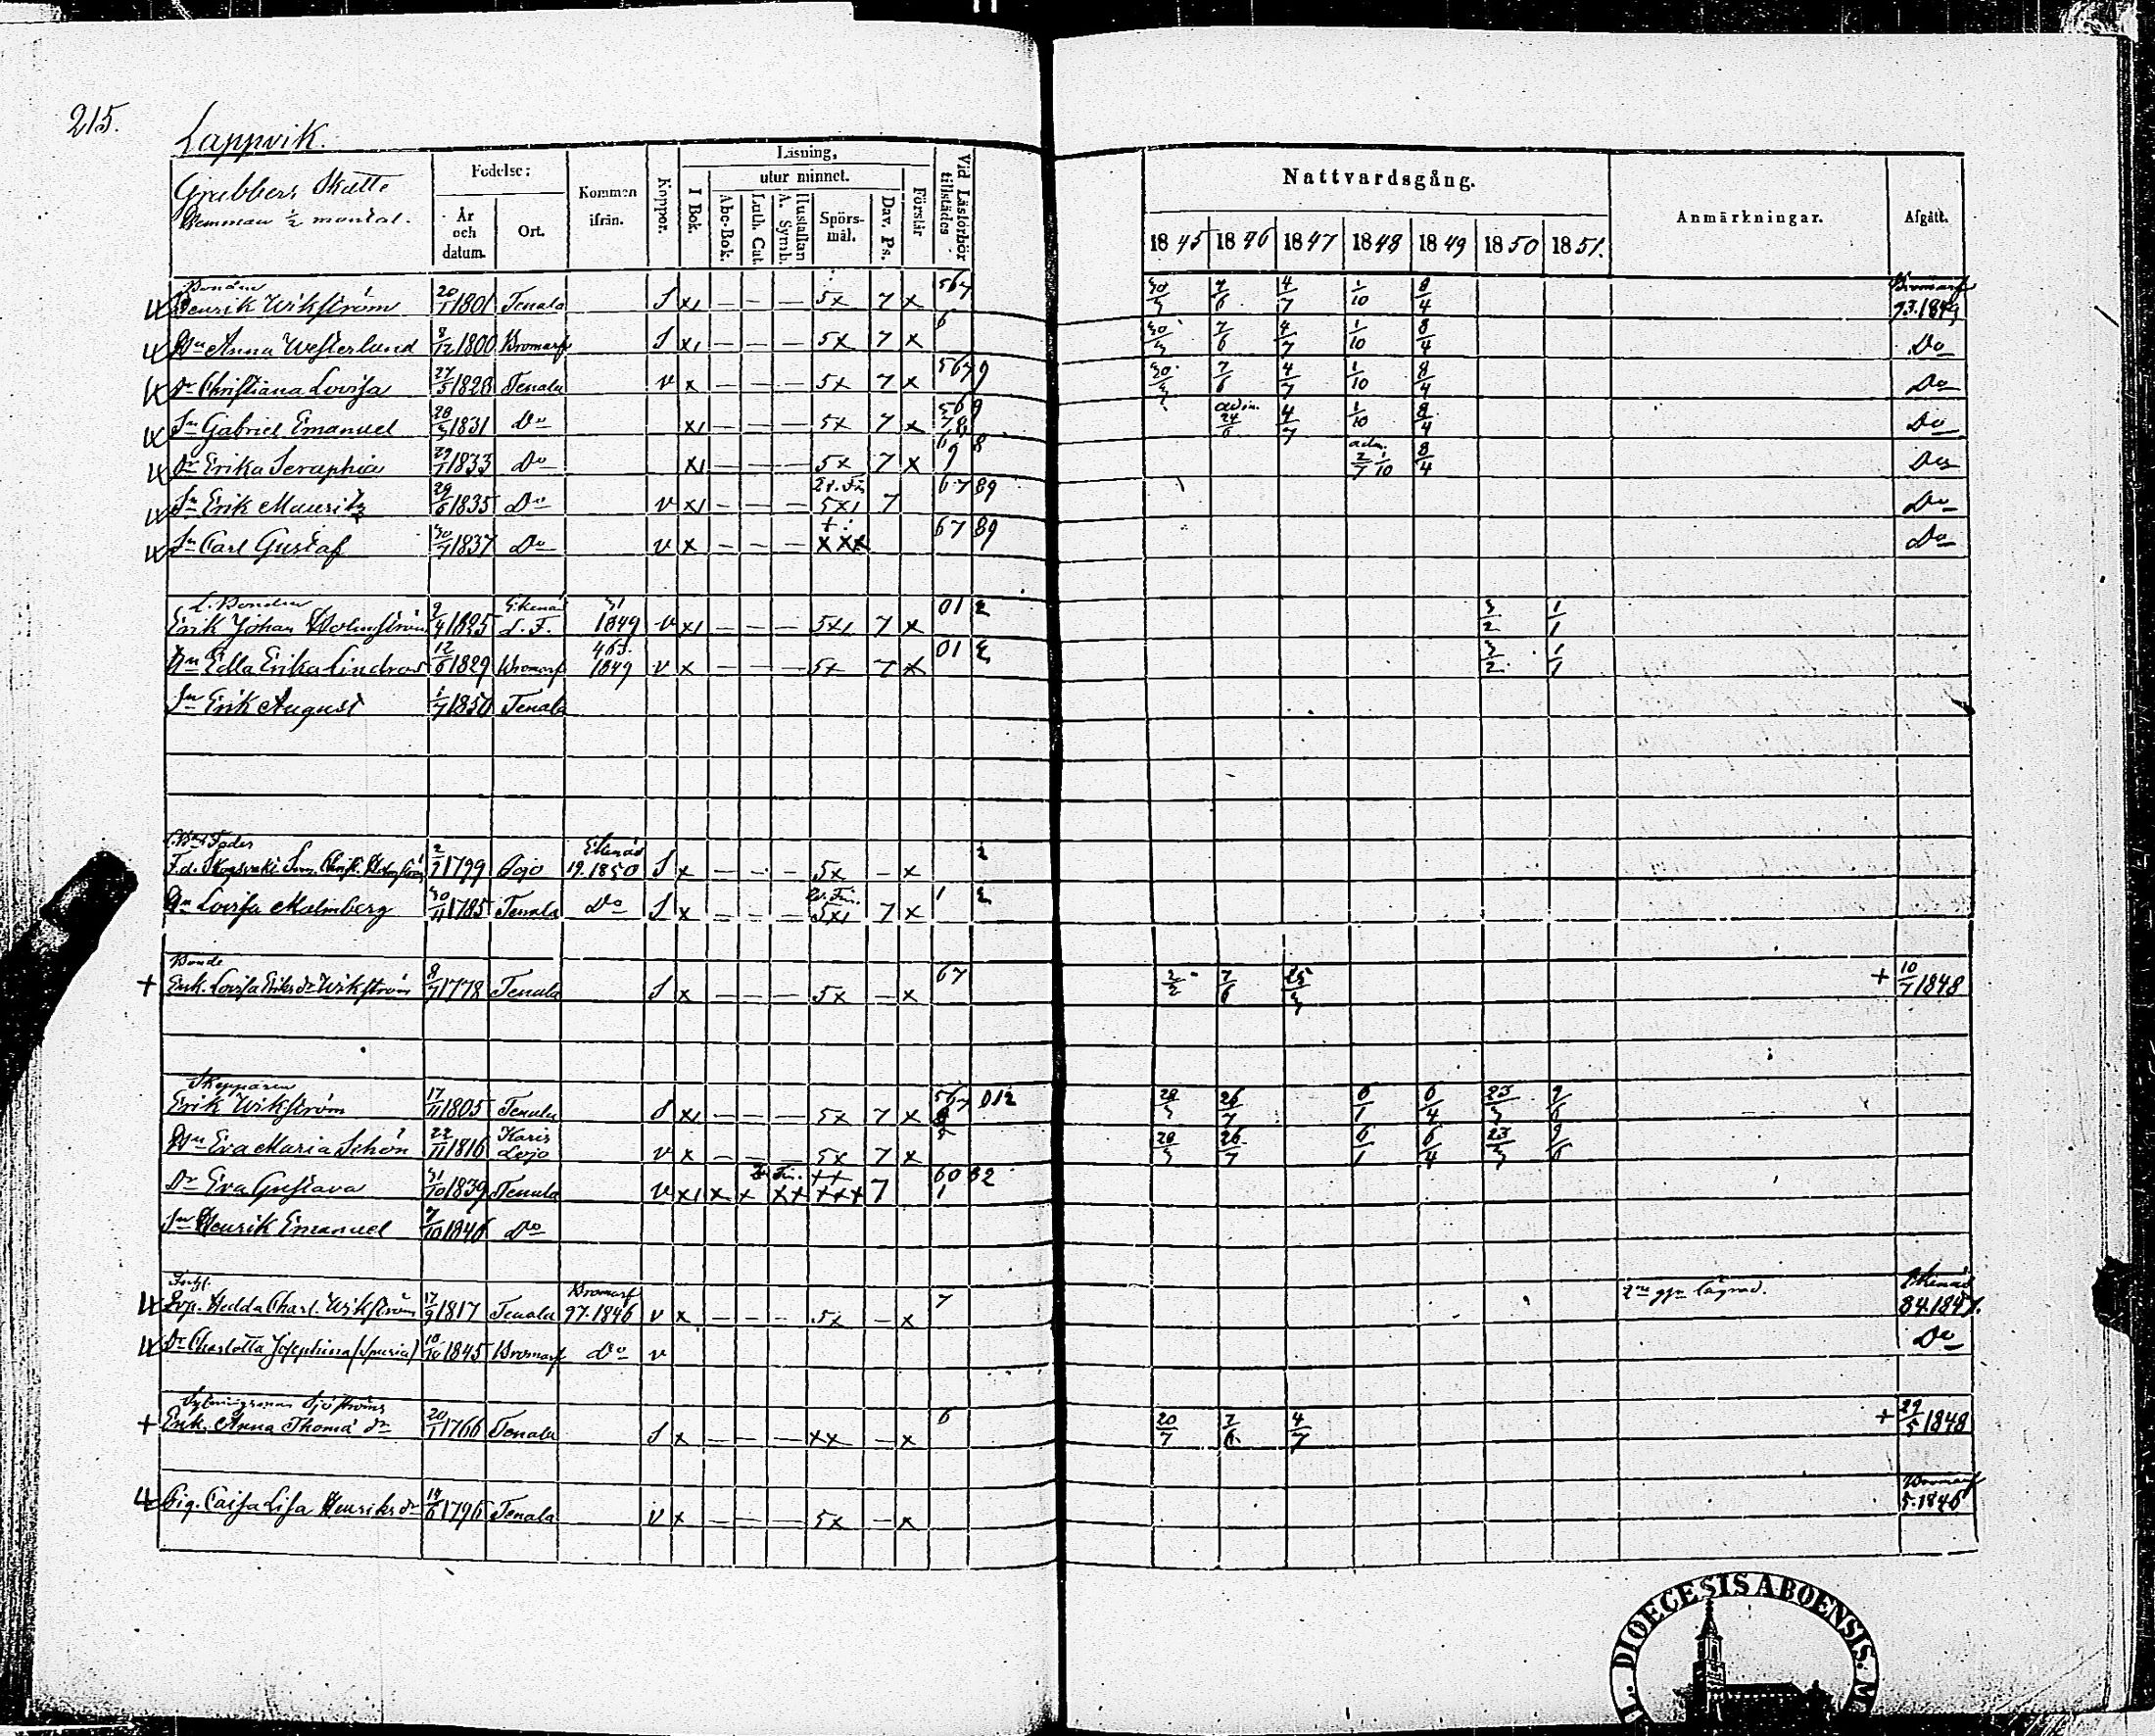 215.
Lappvik.
Grubbers Skatte
Hemman ½ mantal.
Födelse:
År och datum.
Ort.
Kommen ifrån.
Koppor.
Läsning,
I Bok.
utur minnet.
Abc-Bok.
Luth. Cat.
Hustaflan A. Symb.
Spörsmål.
Dav. Ps.
Förstår
Vid Läsförhör tillstädes
Nattvardsgång.
1845 1846 1847 1848 1849 1850 1851.
Anmärkningar.
Afgått.
Bonden
Henrik Wikström 20/1 1801 Tenala S x1 — — — 5x 7 x 567 30/3 7/6 4/7 1/10 8/4 Bromarf 93.1849
Hu Anna Westerlund 8/12 1800 Bromarf S x1 — — — 5x 7 x 6 30/3 7/6 4/7 1/10 8/4 Do
Dr Christiana Lovisa 27/5 1828 Tenala v x — — — 5x 7 x 5679 30/3 7/6 4/7 1/10 8/4 Do
Sn Gabriel Emanuel 28/3 1831 Do x1 — — — 5x 7 x 569 78 adm. 24/6 4/7 1/10 8/4 Do
Dr Erika Seraphia 29/1 1833 Do x1 — — — 5x 7 x 6 8 9 adm. 2/7 1/10 8/4 Do
Sn Erik Mauritz 29/6 1835 Do v x1 — — — 5x1 7 6789 Do
Sn Carl Gustaf 30/7 1837 Do v x — — — xxx 6789 Do
L. Bonden
Erik Johan Holmström 9/4 1825 Ekenäs L. F. 31 1849 v x1 — — — 5x1 7 x 012 3/2 1/1
Hu Edla Erika Lindroos 12/6 1829 Bromarf 463. 1849 v x — — — 5x 7 x 01 2 3/2 1/1
Sn Erik August 1/7 1850 Tenala
F.d. 2/2 1799 Pojo Ekenäs 19.1850 S x — — — 5x — x 2
Hu Lovisa Malmberg 30/11 1785 Tenala Do S x — — — 5x1 7 x 1 2
Bonde
+ Enk. Lovisa Eriksdr Wikström 8/7 1778 Tenala S x — — — 5x — x 67 2/2 7/6 25/3 + 10/7 1848
Skepparen
Erik Wikström 17/11 1805 Tenala S x1 — — — 5x 7 x 567 8 012 28/3 26/7 6/1 6/4 23/3 9/6
Hu Eva Maria Schön 22/11 1816 Karis Lojo v x — — — 5x 7 x 5 28/3 26/7 6/1 6/4 23/3 9/6
Dr Eva Gustava 31/10 1839 Tenala v x1 x x xx xxx 7 60 82 1
Sn Henrik Emanuel 7/10 1846 Do
Hedda Charl. Wikström 17/9 1817 Tenala Bromarf 97.1846 v x — — — 5x — x 7 2ne ggn lägrad. Ekenäs 84.1847.
Dr Charlotta Josephina (spuria) 18/10 1845 Bromarf Do v Do
Sytningsman Sjöströms
+ Enk. Anna Thomædr 20/1 1766 Tenala S x — — — xx — x 6 20/7 7/6 4/7 + 29/5 1848
Pig. Caisa Lisa Henriksdr 19/6 1796 Tenala v x — — — 5x — x Bromarf 5.1846
DIOECESIS ABOENSIS. M